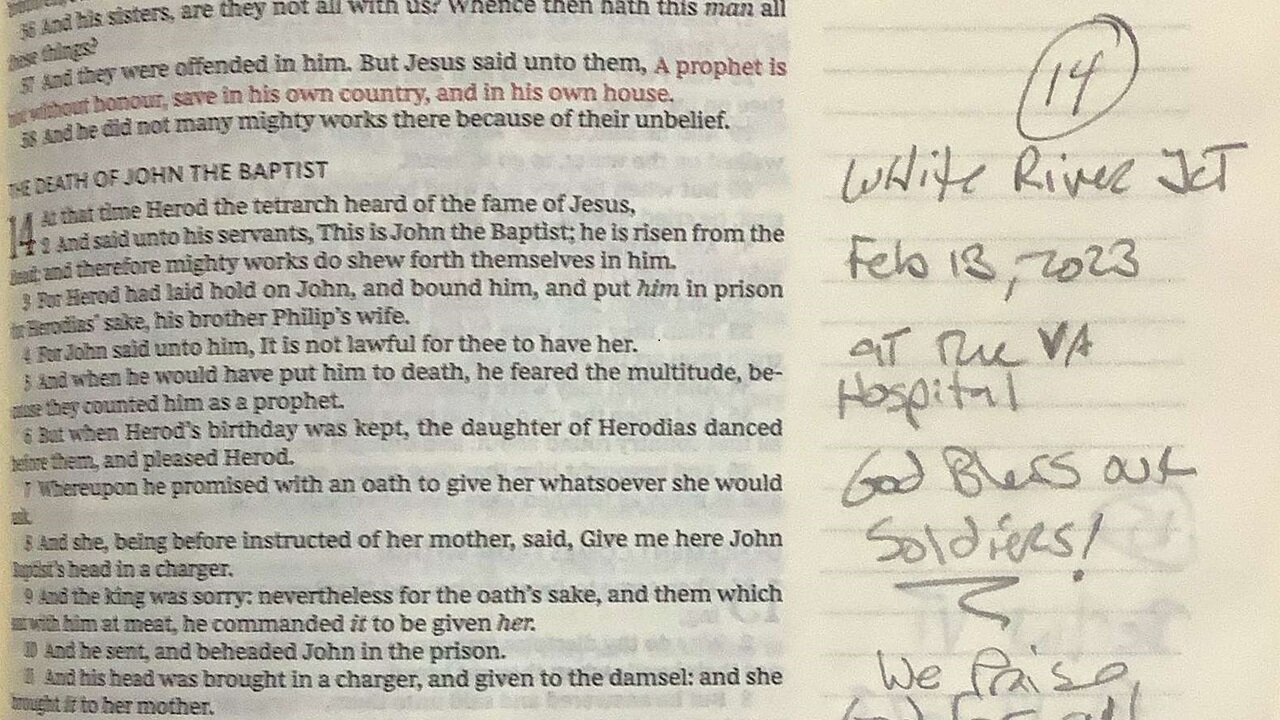 56 And his sisters, are they not all with us? Whence then hath this man all
these things?
57 And they were offended in him. But Jesus said unto them, A prophet is
not without honour, save in his own country, and in his own house.
58 And he did not many mighty works there because of their unbelief.
THE DEATH OF JOHN THE BAPTIST
14 At that time Herod the tetrarch heard of the fame of Jesus,
2 And said unto his servants, This is John the Baptist; he is risen from the
dead; and therefore mighty works do shew forth themselves in him.
3 For Herod had laid hold on John, and bound him, and put him in prison
for Herodias' sake, his brother Philip's wife.
4 For John said unto him, It is not lawful for thee to have her.
5 And when he would have put him to death, he feared the multitude, be-
cause they counted him as a prophet.
6 But when Herod's birthday was kept, the daughter of Herodias danced
before them, and pleased Herod.
7 Whereupon he promised with an oath to give her whatsoever she would
ask.
8 And she, being before instructed of her mother, said, Give me here John
Baptist's head in a charger.
9 And the king was sorry: nevertheless for the oath's sake, and them which
sat with him at meat, he commanded it to be given her.
10 And he sent, and beheaded John in the prison.
11 And his head was brought in a charger, and given to the damsel: and she
brought it to her mother.
14
White River Jct
Feb 13, 2023
at the VA
Hospital
God Bless our
Soldiers!
We Praise
God for all